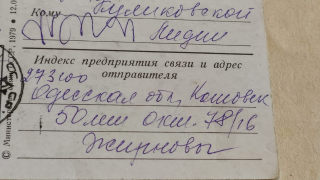 Кому Куликовской
Лидии
Индекс предприятия связи и адрес
отправителя
273100
Одесская обл, Котовск
50 лет окт. 78/16
Жирновы
© Министерство
1979